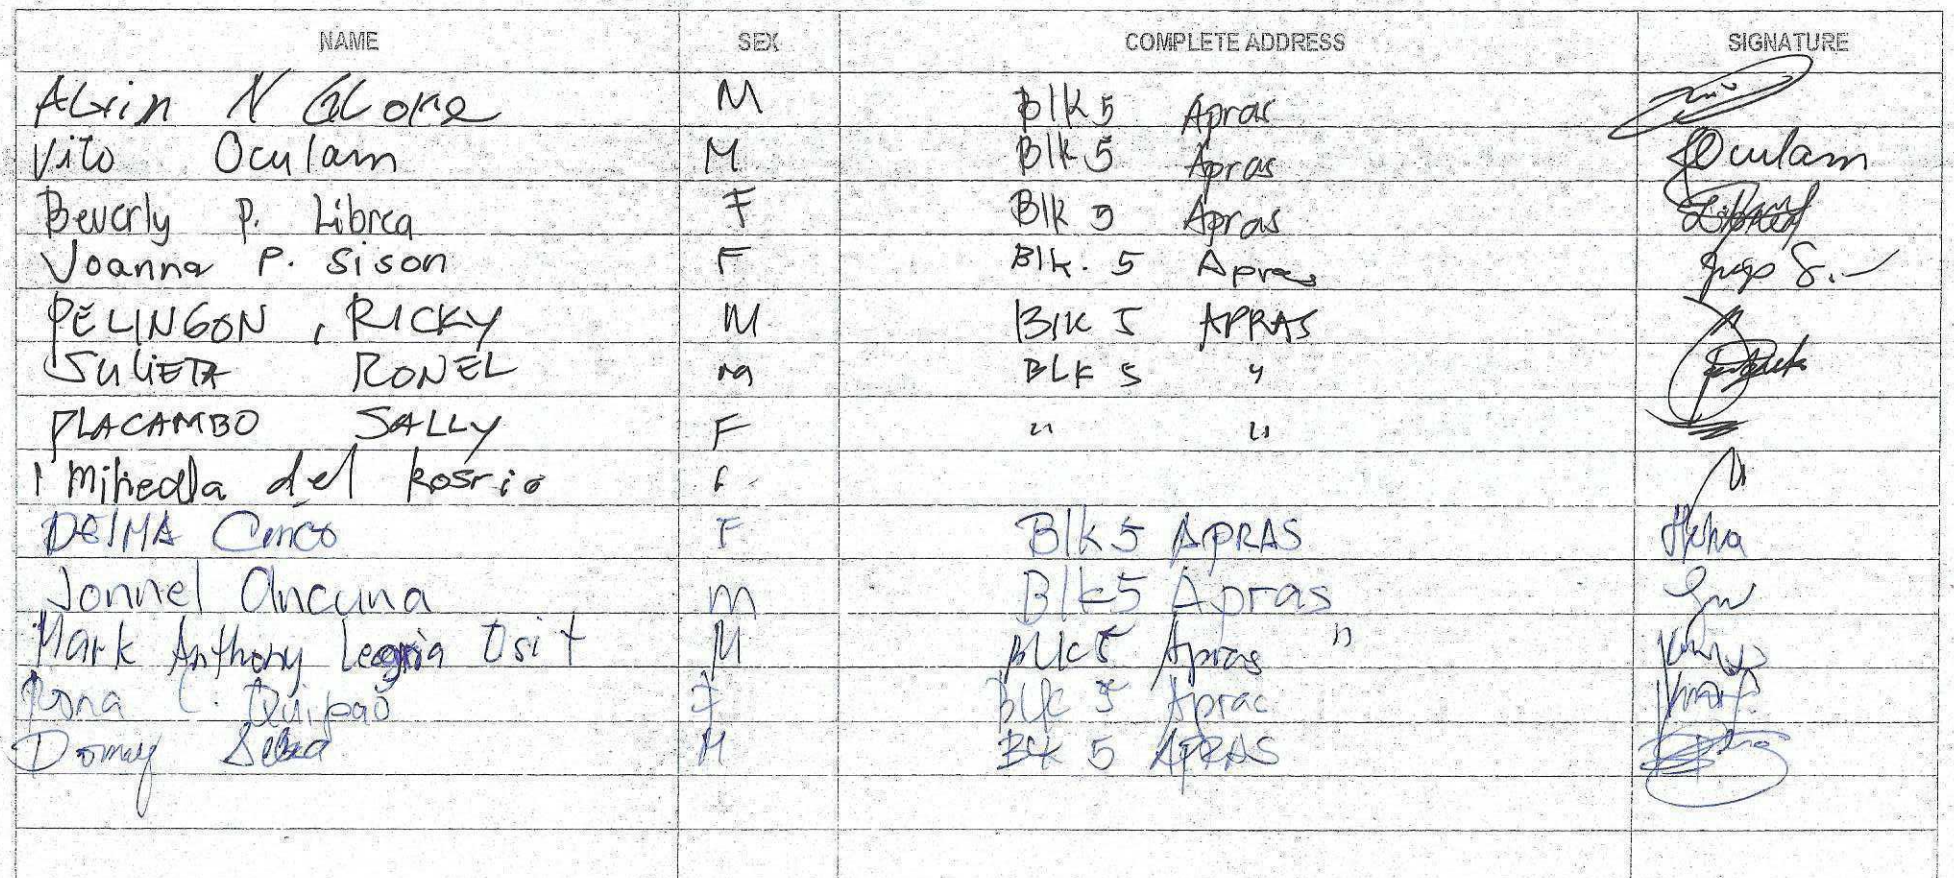 NAME SEX COMPLETE ADDRESS SIGNATURE
Alvin N Glore M Blk 5 Apras
Vito Oculam M Blk 5 Apras Oculam
Beverly P. Librea F Blk 5 Apras
Joanna P. Sison F Blk. 5 Apras
PELINGON, RICKY M Blk 5 APRAS
SULIETA RONEL m BLK 5 "
PLACAMBO SALLY F " "
del Rosrio f
DELMA Cinco F Blk 5 APRAS
Jonnel Ancuna m Blk 5 Apras
Mark Anthony Legria Osit M Blk 5 Apras "
Rona C. Quipao F Blk 5 Apras
Domy M Blk 5 APRAS